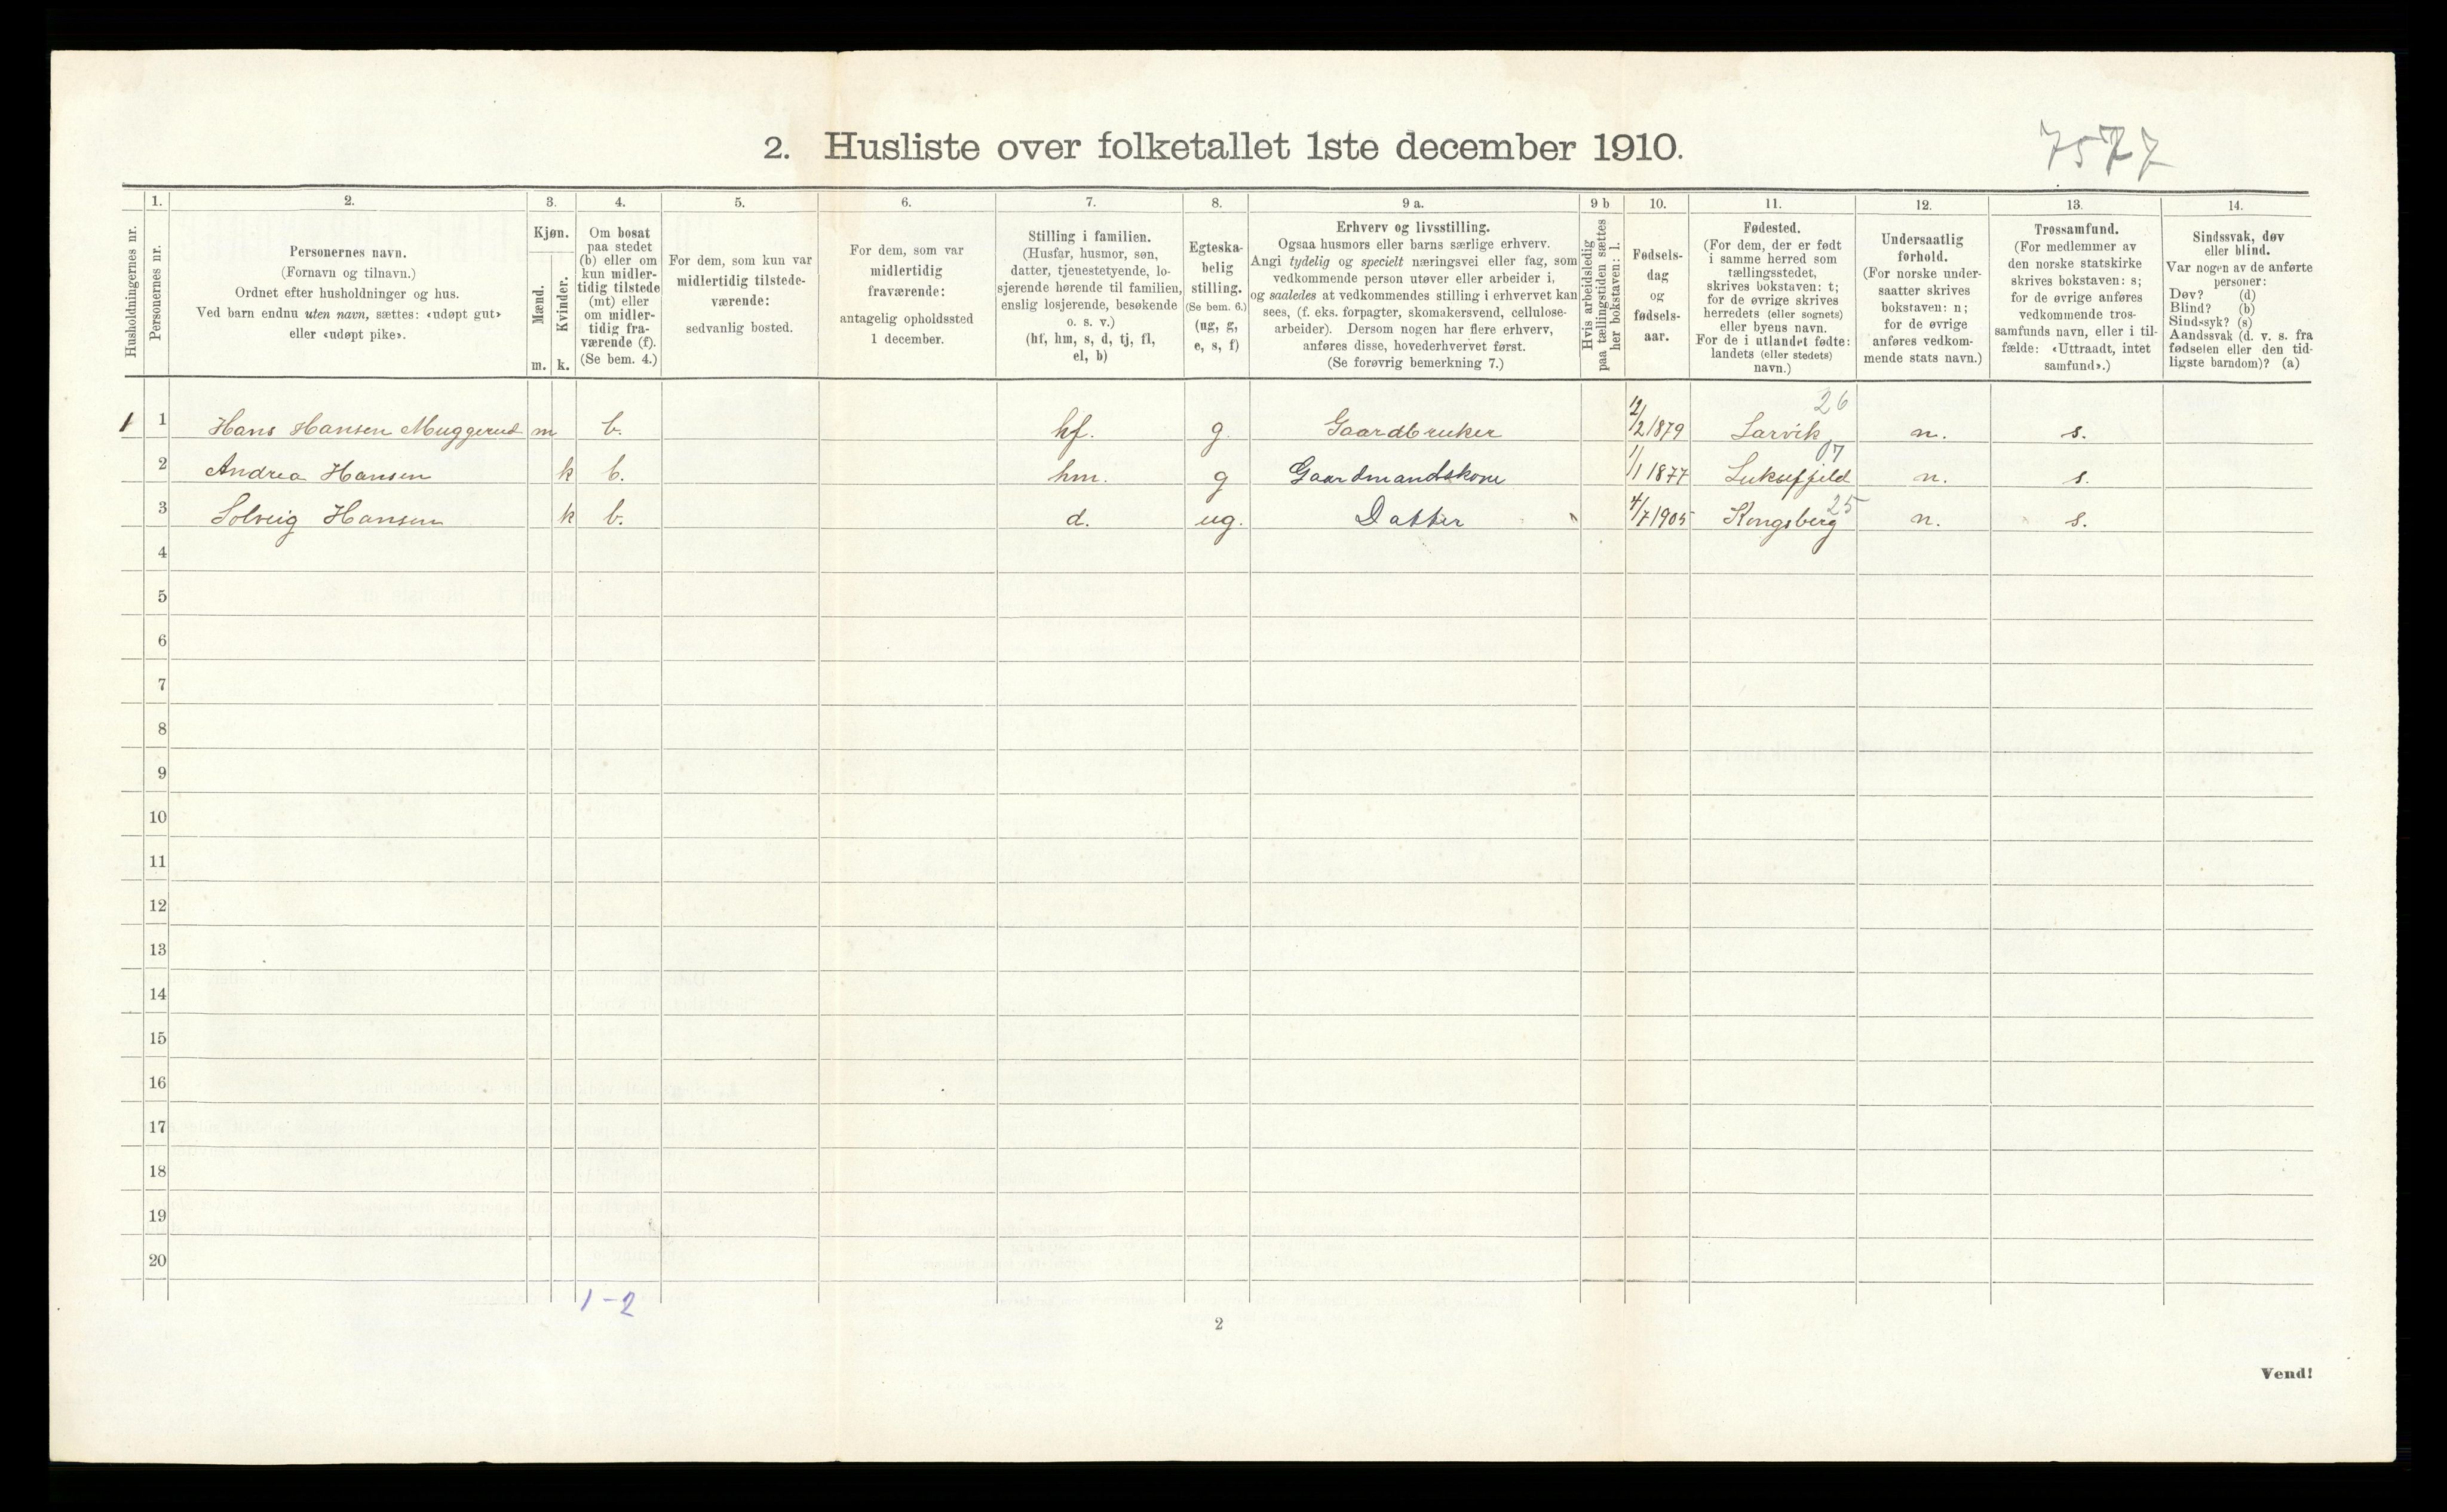 7577
2. Husliste over folketallet 1ste december 1910.
Husholdningernes nr.
1. Personernes nr.
2. Personernes navn.
(Fornavn og tilnavn.)
Ordnet efter husholdninger og hus.
Ved barn endnu uten navn, sættes: «udøpt gut»
eller «udøpt pike».
3. Kjøn.
Mænd. m.
Kvinder. k.
4. Om bosat
paa stedet
(b) eller om
kun midler-
tidig tilstede
(mt) eller
om midler-
tidig fra-
værende (f).
(Se bem. 4.)
5. For dem, som kun var
midlertidig tilstede-
værende:
sedvanlig bosted.
6. For dem, som var
midlertidig
fraværende:
antagelig opholdssted
1 december.
7. Stilling i familien.
(Husfar, husmor, søn,
datter, tjenestetyende, lo-
sjerende hørende til familien,
enslig losjerende, besøkende
o. s. v.)
(hf, hm, s, d, tj, fl,
el, b)
8. Egteska-
belig
stilling.
(Se bem. 6.)
(ug, g,
e, s, f)
9 a. Erhverv og livsstilling.
Ogsaa husmors eller barns særlige erhverv.
Angi tydelig og specielt næringsvei eller fag, som
vedkommende person utøver eller arbeider i,
og saaledes at vedkommendes stilling i erhvervet kan
sees, (f. eks. forpagter, skomakersvend, cellulose-
arbeider). Dersom nogen har flere erhverv,
anføres disse, hovederhvervet først.
(Se forøvrig bemerkning 7.)
9 b Hvis arbeidsledig
paa tællingstiden sættes
her bokstaven: l.
10. Fødsels-
dag
og
fødsels-
aar.
11. Fødested.
(For dem, der er født
i samme herred som
tællingsstedet,
skrives bokstaven: t;
for de øvrige skrives
herredets (eller sognets)
eller byens navn.
For de i utlandet fødte:
landets (eller stedets)
navn.)
12. Undersaatlig
forhold.
(For norske under-
saatter skrives
bokstaven: n;
for de øvrige
anføres vedkom-
mende stats navn.)
13. Trossamfund.
(For medlemmer av
den norske statskirke
skrives bokstaven: s;
for de øvrige anføres
vedkommende tros-
samfunds navn, eller i til-
fælde: «Uttraadt, intet
samfund».)
14. Sindssvak, døv
eller blind.
Var nogen av de anførte
personer:
Døv? (d)
Blind? (b)
Sindssyk? (s)
Aandssvak (d. v. s. fra
fødselen eller den tid-
ligste barndom)? (a)
1 1 Hans Hansen Muggerud m b. hf. g. Gaardbruker 12/2 1879 Larvik 26 n. s.
2 Andrea Hansen k b. hm. g Gaardmandskone 1/1 1877 Luksefjeld 07 n. s.
3 Solveig Hansen k b. d. ug. Datter 4/7 1905 Kongsberg 25 n. s.
4
5
6
7
8
9
10
11
12
13
14
15
16
17
18
19
20
1-2
2
Vend!